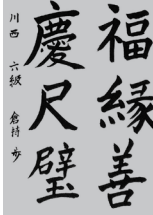 福縁善
慶尺璧
川西 六級 倉持 歩